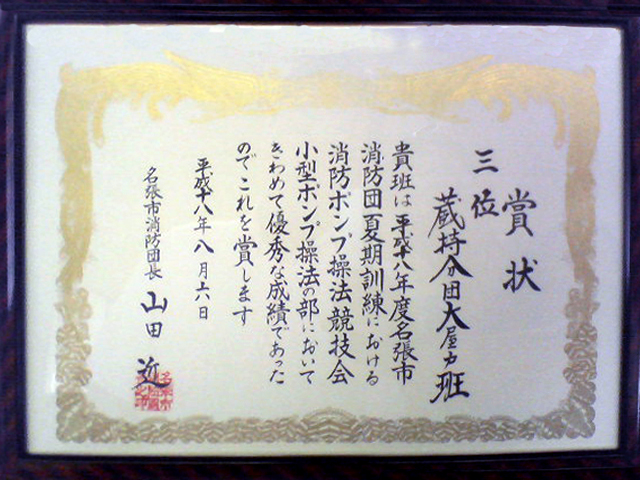 賞状
三位
蔵持分団大屋戸班
貴班は平成十八年度名張市
消防団夏期訓練における
消防ポンプ操法競技会
小型ポンプ操法の部において
きわめて優秀な成績であった
のでこれを賞します
平成十八年八月六日
名張市消防団長 山田 近